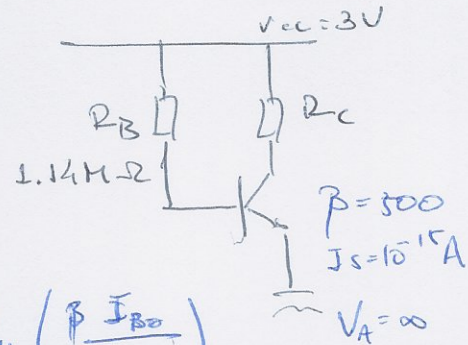 Vcc=3V
R_B R_C
1.14MΩ
β=500
I_S=10^-15 A
V_A=∞
(β I_B0)